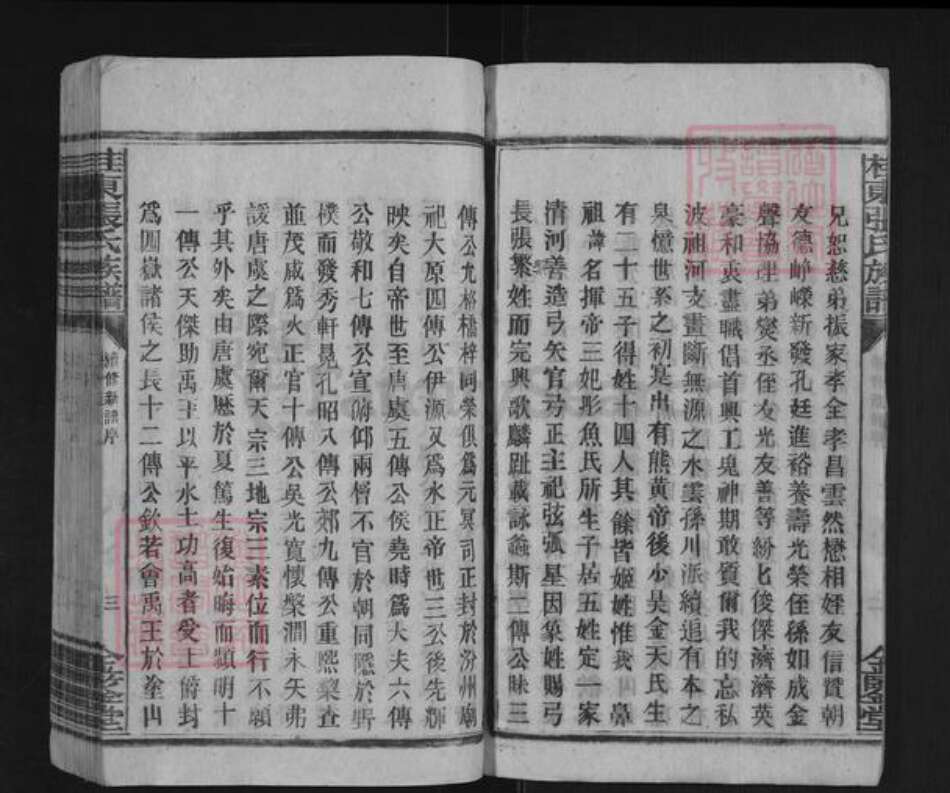 桂東張氏族譜
兄恕慈弟振家孝全孝昌雲然懋相姪友信賛朝
友德崢嶸新發孔廷進裕養壽光榮侄孫如成金
聲協理弟燮丞侄友光友善等紛匕俊傑濟濟英
豪和衷盡職倡首興工鬼神期敢質爾我的忘私
波祖河支盡斷無源之木雲孫川派續追有本之
泉憶世系之初寔出有熊黄帝後少昊金天氏生
有二十五子得姓十四人其餘皆姬姓惟我鼻
祖諱名揮帝三妃彤魚氏所生子居五姓定一家
清河善造弓矢官弓正主祀弦弧星因象姓賜弓
長張繁姓而完興歌麟趾載詠螽斯二傳公昧三
傳公允格橋梓同榮俱爲元冥司正封於汾州廟
祀大原四傳公伊源又爲水正帝世三公後先輝
映矣自帝世至唐虞五傳公侯堯時爲大夫六傳
公敬和七傳公宣俯仰兩悟不官於朝同隱於野
樸而發秀軒見孔昭八傳公郊九傳公重熙契查
並茂咸爲火正官十傳公吳光寬懷槃澗永矢弗
諼唐虞之際宛爾天宗三地宗三素位而行不願
乎其外矣由唐虞歷於夏篤生復始晦而顯明十
一傳公天傑助禹王以平水土功高者受上爵封
爲四嶽諸侯之長十二傳公欽若會禹王於塗山
桂東張氏族譜
續修新譜序
三